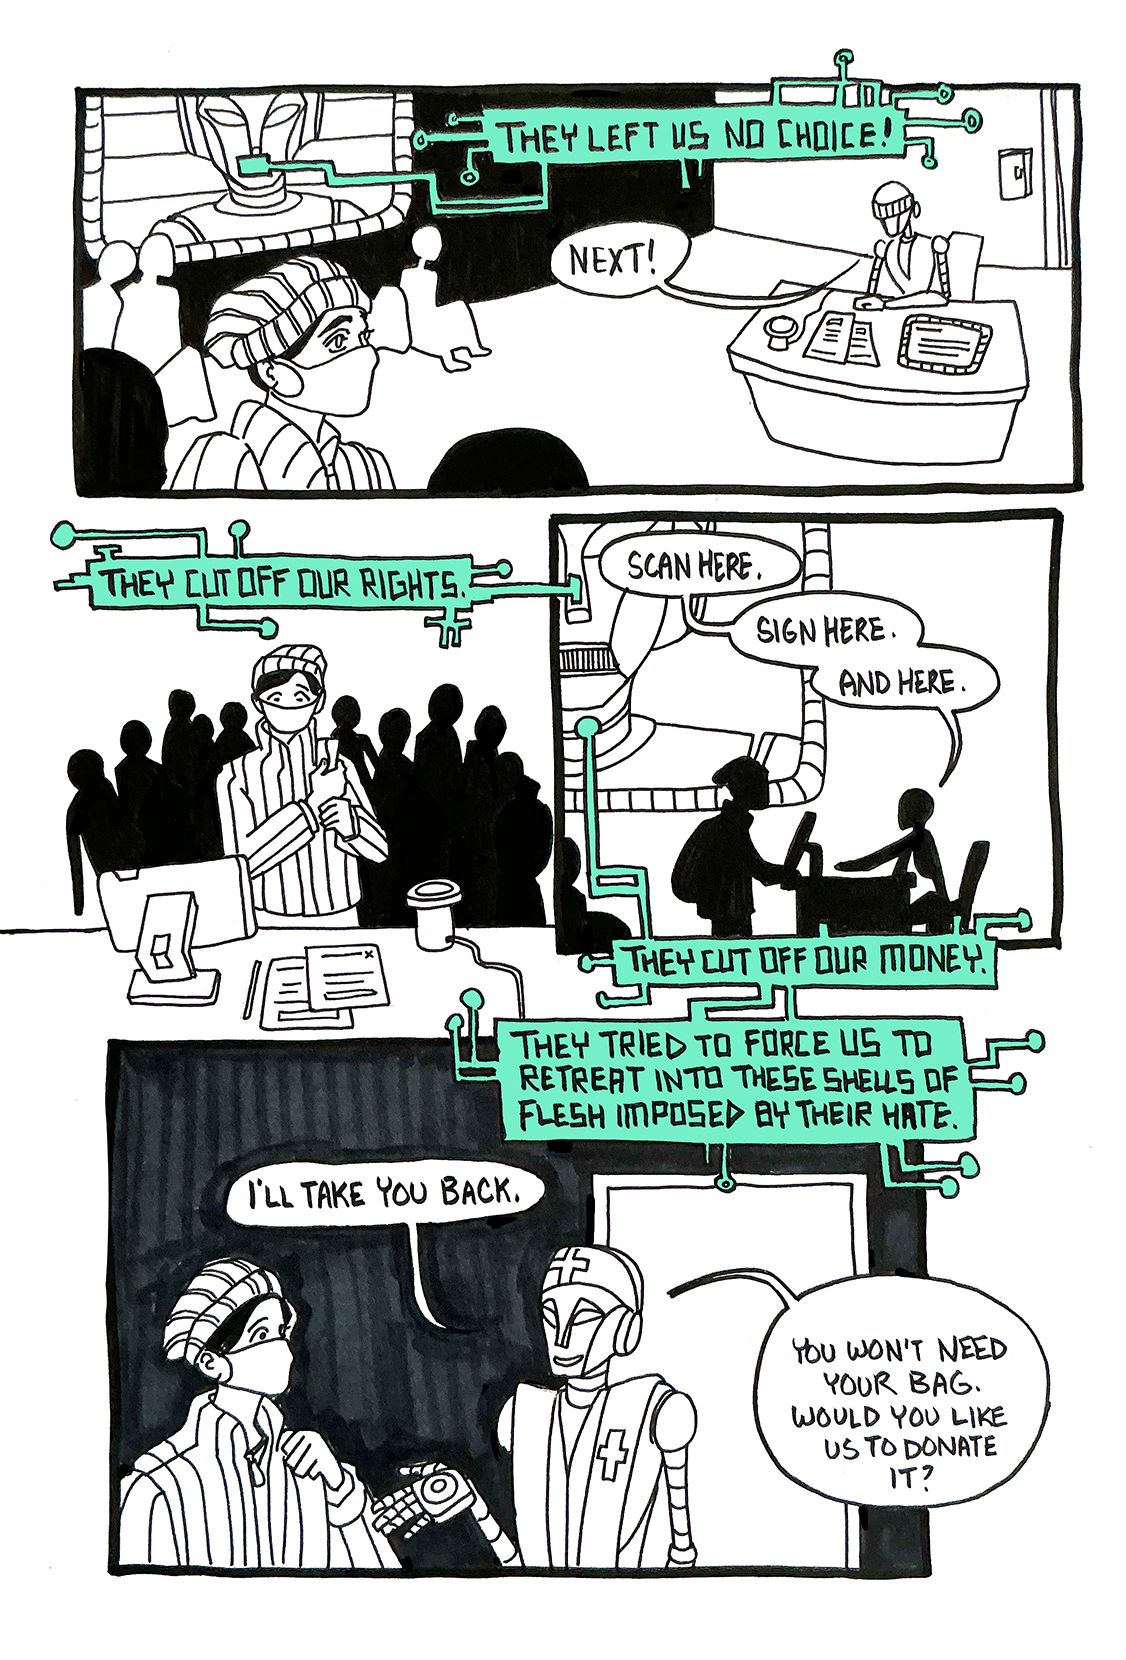 THEY LEFT US NO CHOICE!
NEXT!
THEY CUT OFF OUR RIGHTS.
SCAN HERE.
SIGN HERE.
AND HERE.
THEY CUT OFF OUR MONEY.
THEY TRIED TO FORCE US TO
RETREAT INTO THESE SHELLS OF
FLESH IMPOSED BY THEIR HATE.
I'LL TAKE YOU BACK.
YOU WON'T NEED
YOUR BAG.
WOULD YOU LIKE
US TO DONATE
IT?